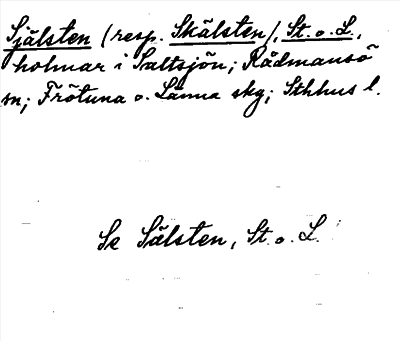 Själsten (resp. Skälsten), St. o. L.,
holmar i Saltsjön; Rådmansö
sn; Frötuna o. Länna skg; Sthhus l.
Se Sälsten, St. o. L.